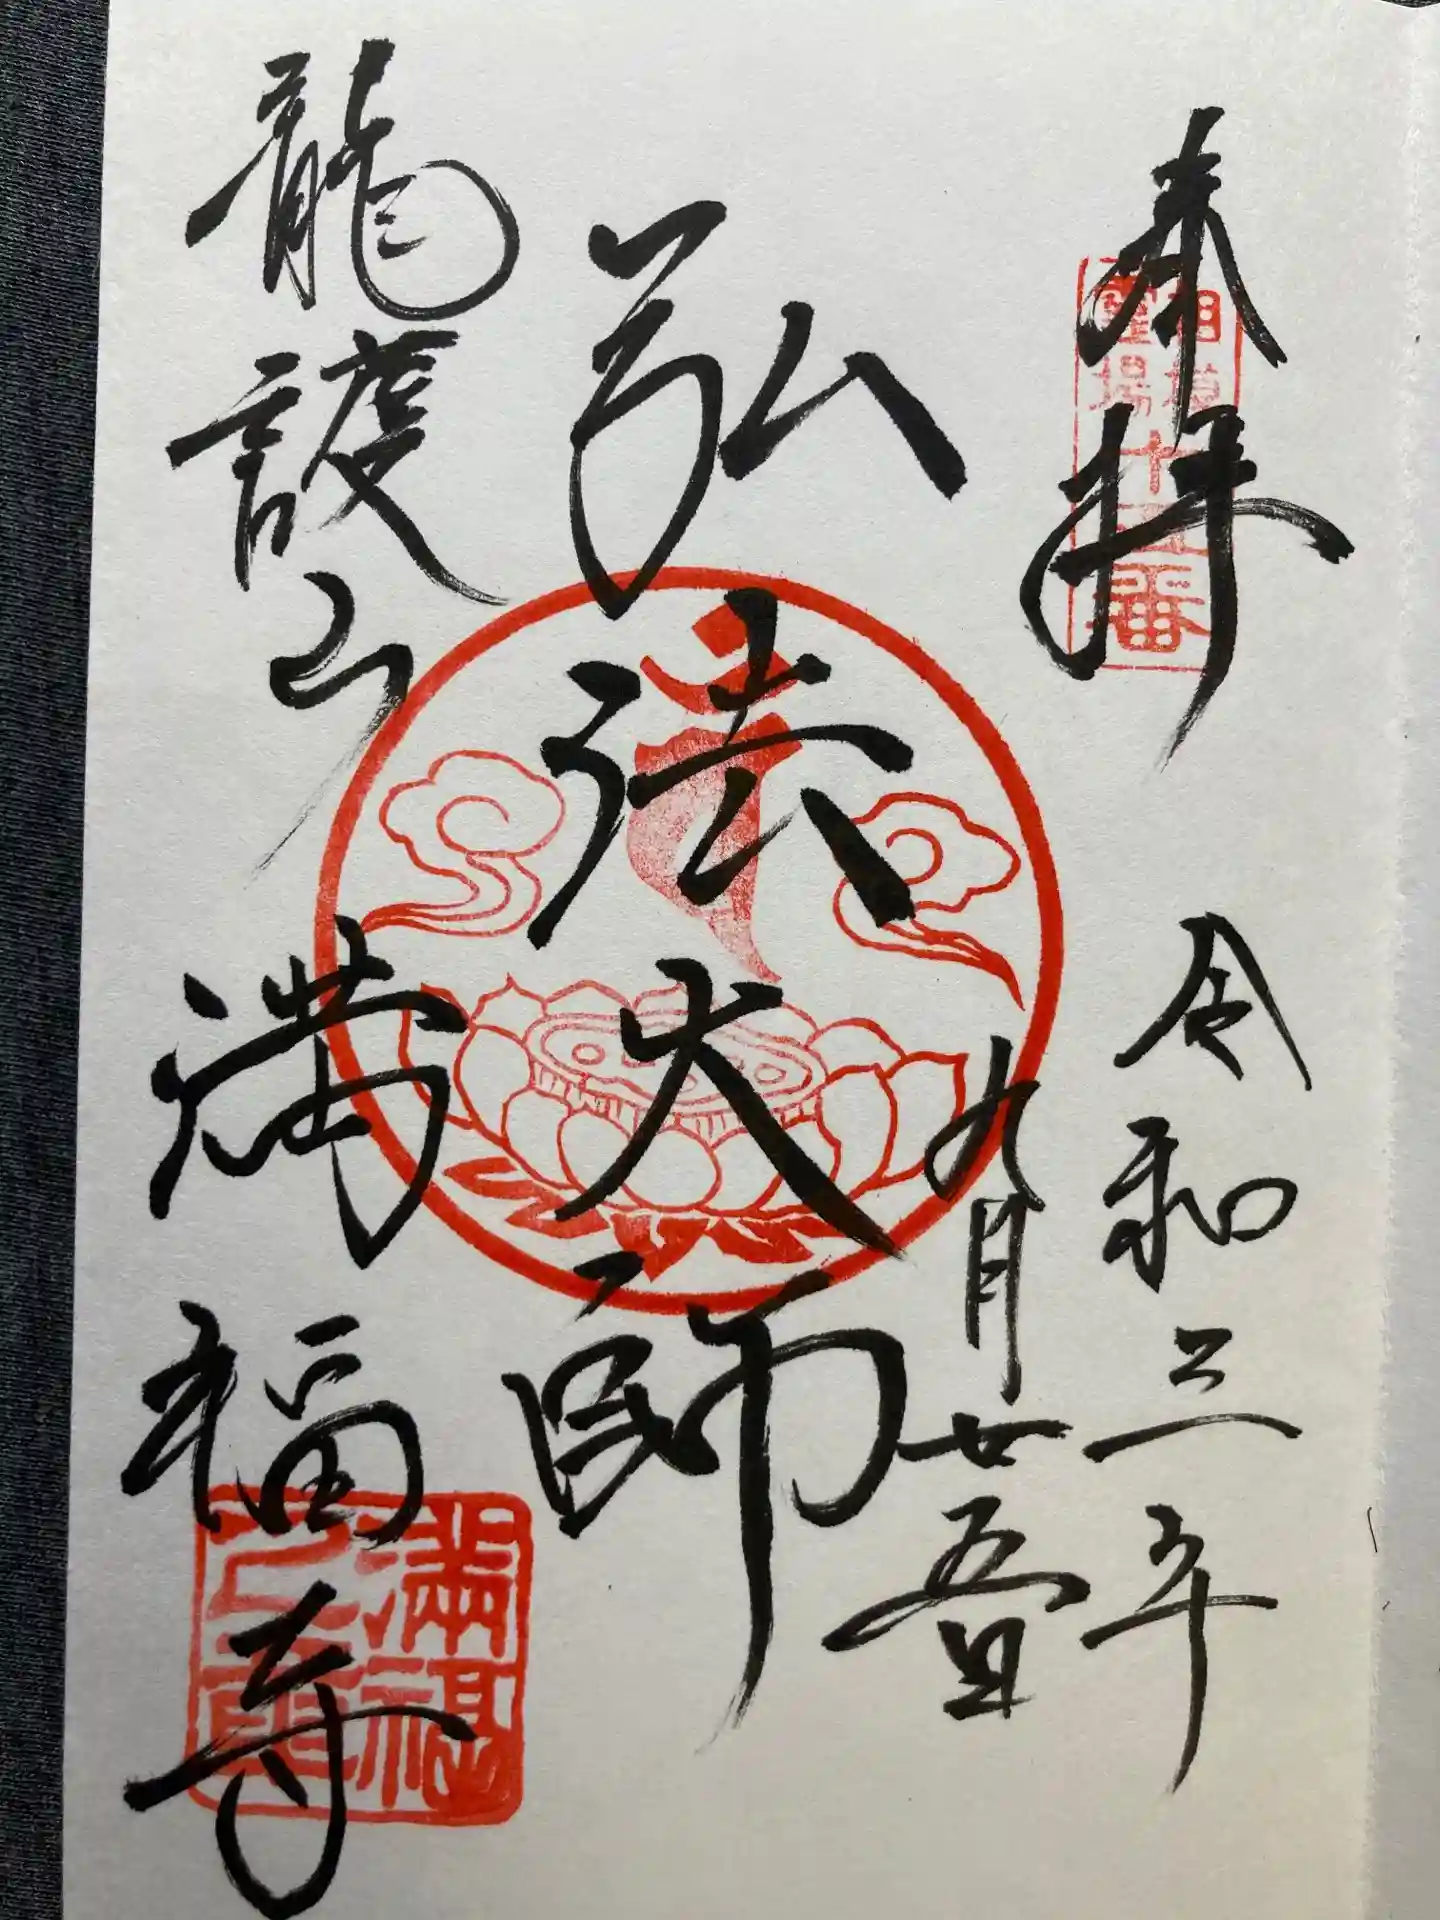 奉拝
相模
霊場
令和三年
九月廿五日
弘法大師
龍護山
満福寺
満福